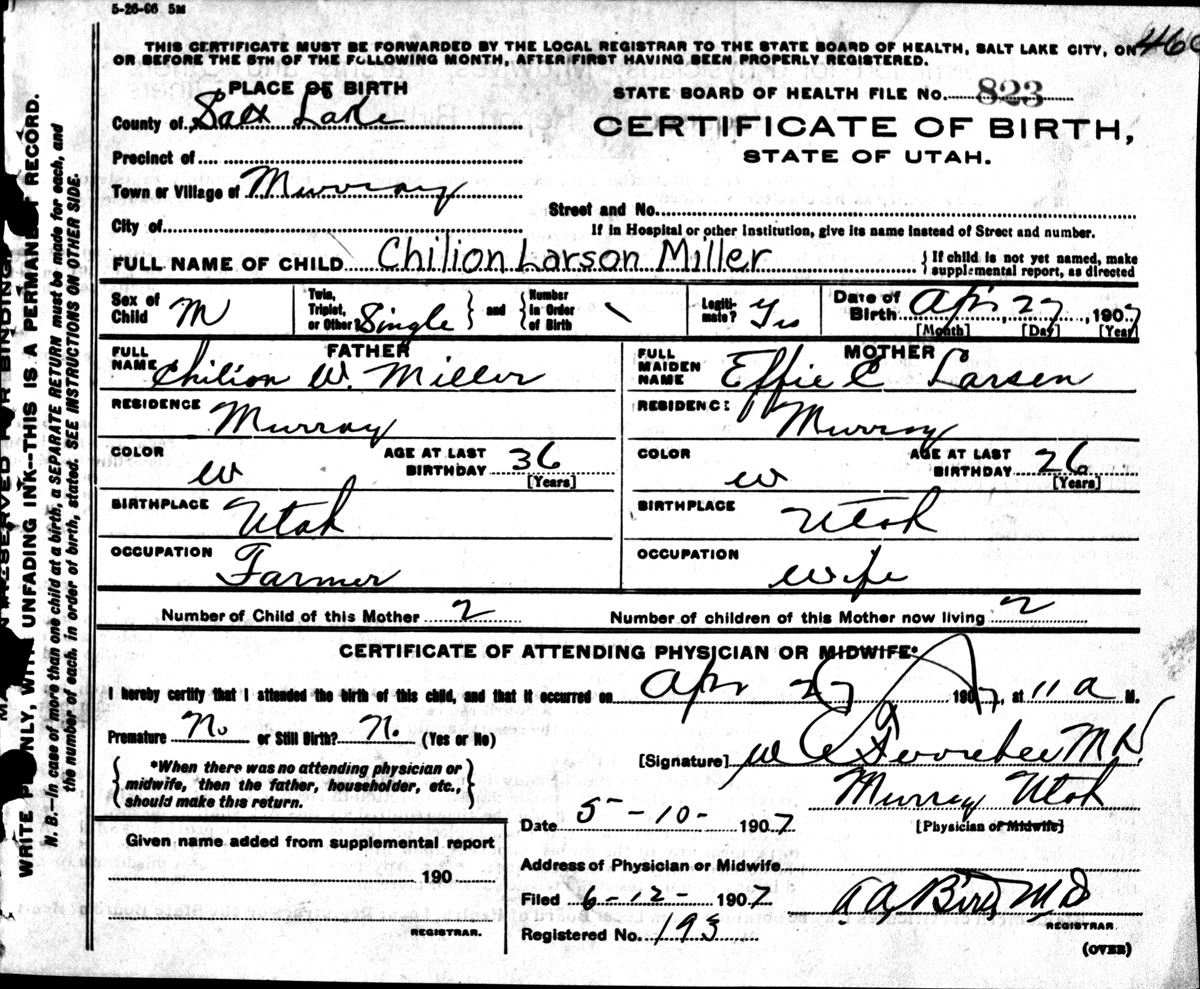 5-26-06 5M
THIS CERTIFICATE MUST BE FORWARDED BY THE LOCAL REGISTRAR TO THE STATE BOARD OF HEALTH, SALT LAKE CITY, ON
OR BEFORE THE 5TH OF THE FOLLOWING MONTH, AFTER FIRST HAVING BEEN PROPERLY REGISTERED.
PLACE OF BIRTH
County of Salt Lake
Precinct of
Town or Village of Murray
City of
STATE BOARD OF HEALTH FILE No. 823
CERTIFICATE OF BIRTH,
STATE OF UTAH.
Street and No.
If in Hospital or other Institution, give its name instead of Street and number.
FULL NAME OF CHILD Chilion Larson Miller
{ If child is not yet named, make
supplemental report, as directed
Sex of Child M
Twin, Triplet, or Other? Single } and { Number in Order of Birth \
Legitimate? Yes
Date of Birth Apr 27, 1907
[Month] [Day] [Year]
FATHER
FULL NAME Chilion W. Miller
RESIDENCE Murray
COLOR W
AGE AT LAST BIRTHDAY 36
[Years]
BIRTHPLACE Utah
OCCUPATION Farmer
MOTHER
FULL MAIDEN NAME Effie C Larsen
RESIDENCE Murray
COLOR W
AGE AT LAST BIRTHDAY 26
[Years]
BIRTHPLACE Utah
OCCUPATION Wife
Number of Child of this Mother 2
Number of children of this Mother now living 2
CERTIFICATE OF ATTENDING PHYSICIAN OR MIDWIFE*
I hereby certify that I attended the birth of this child, and that it occurred on Apr 27 1907, at 11 a M.
Premature No or Still Birth? No (Yes or No)
{ *When there was no attending physician or
midwife, then the father, householder, etc.,
should make this return. }
[Signature] M D
Murray Utah
[Physician or Midwife]
Date 5-10- 1907
Address of Physician or Midwife
Filed 6-12- 1907
Registered No. 193
A A Bird M D
REGISTRAR
(OVER)
Given name added from supplemental report
190
REGISTRAR.
WRITE PLAINLY, WITH UNFADING INK--THIS IS A PERMANENT RECORD.
N. B.—In case of more than one child at a birth, a SEPARATE RETURN must be made for each, and
the number of each, in order of birth, stated. SEE INSTRUCTIONS ON OTHER SIDE.